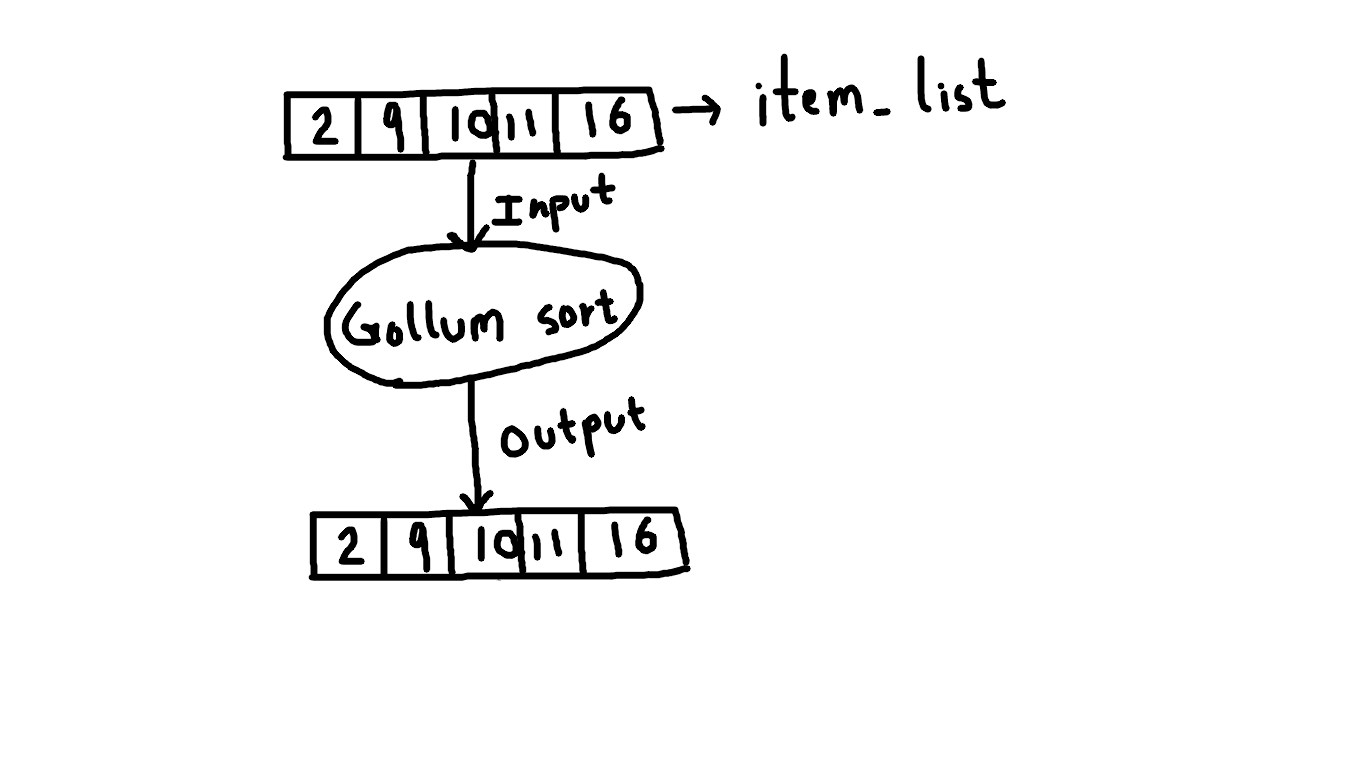 2 9 10 11 16 → item_list
Input
Gollum sort
Output
2 9 10 11 16